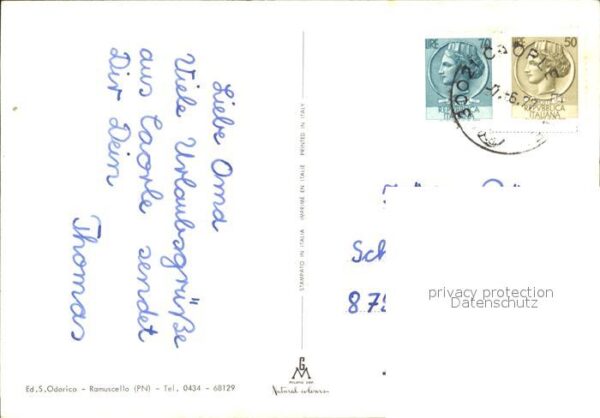 Liebe Oma
Viele Urlaubsgrüße
aus Caorle sendet
Dir Dein
Thomas
STAMPATO IN ITALIA IMPRIMÉ EN ITALIE PRINTED IN ITALY
LIRE 70
REPVBBLICA
ITALIANA
LIRE 50
REPVBBLICA
ITALIANA
CAORLE
Sch
872
privacy protection
Datenschutz
Ed. S. Odorico - Ramuscello (PN) - Tel. 0434 - 68129
G M
Natural colours